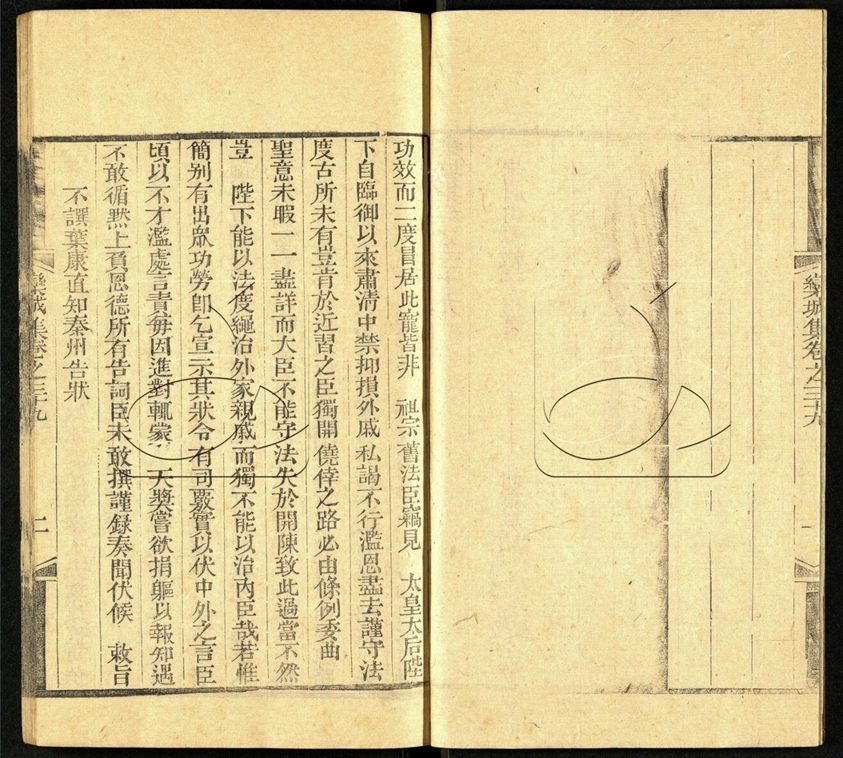 欒城集卷之三十九
功效而二度冒居此寵皆非　祖宗舊法臣竊見　太皇太后陛
下自臨御以來肅清中禁抑損外戚私謁不行濫恩盡去謹守法
度古所未有豈肯於近習之臣獨開僥倖之路必由條例委曲
聖意未暇一一盡詳而大臣不能守法失於開陳致此過當不然
豈　陛下能以法度繩治外家親戚而獨不能以治內臣哉若惟
簡別有出眾功勞卽乞宣示其狀令有司覈實以伏中外之言臣
頃以不才濫處言責每因進對輒蒙　天獎嘗欲捐軀以報知遇
不敢循默上負恩德所有告詞臣未敢撰謹録奏聞伏候　敕旨
不譔葉康直知秦州告狀
欒城集卷之三十九
二